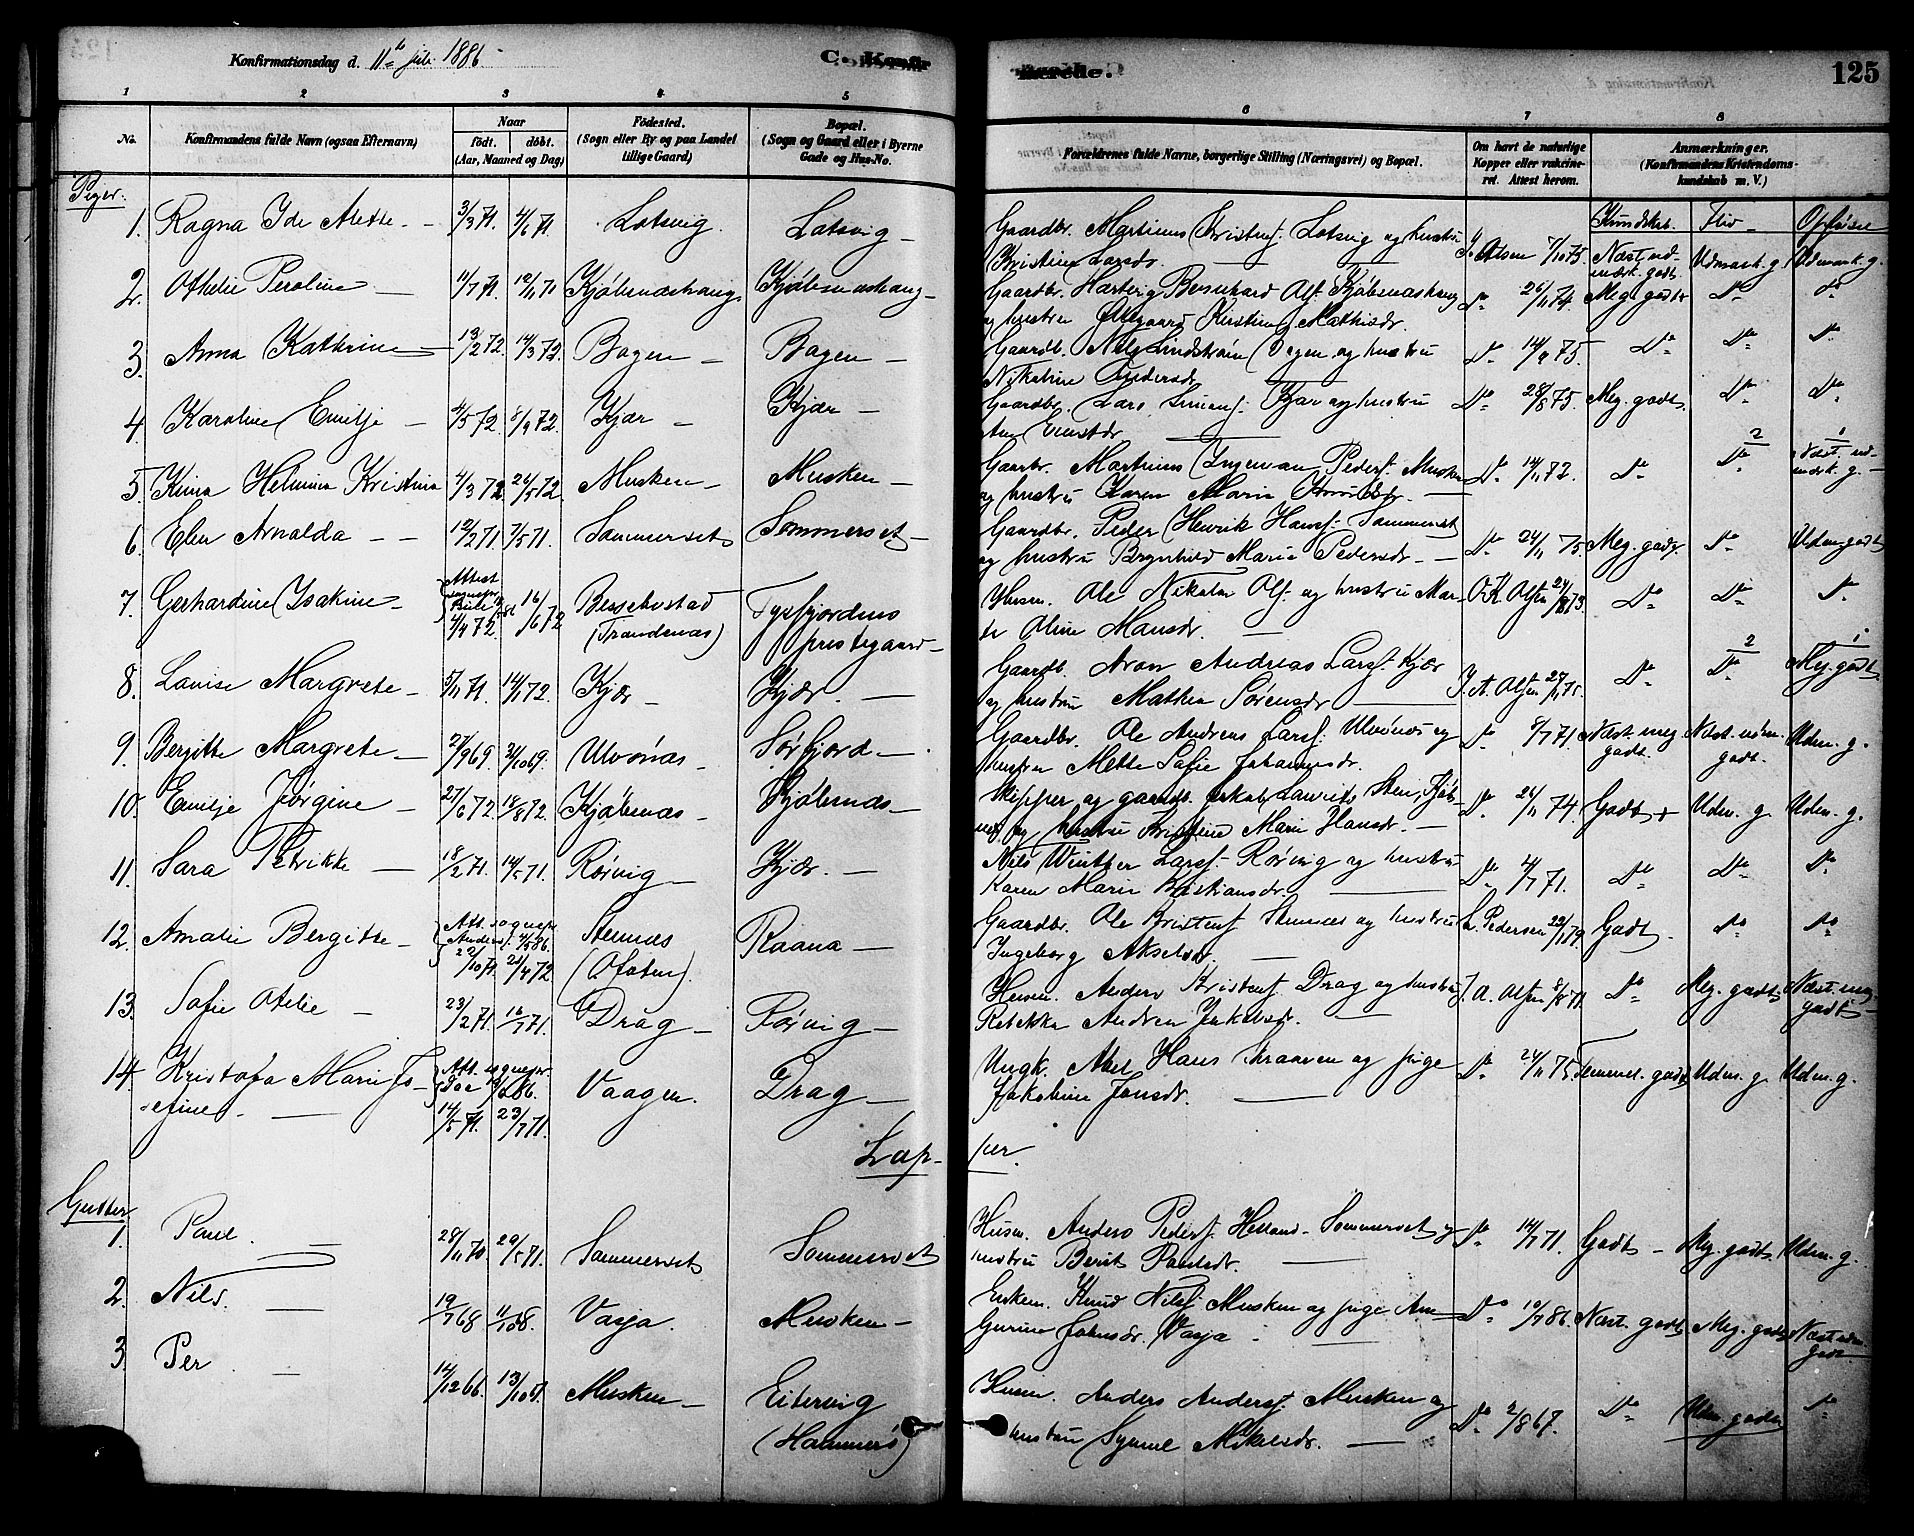 Konfirmationsdag d. 11te juli 1886.
C. Konfir
merede.
125
1 2 3 4 5 6 7 8
No.
Konfirmandens fulde Navn (ogsaa Efternavn)
Naar
født. døbt.
(Aar, Maaned og Dag)
Fødested.
(Sogn eller By og paa Landet
tillige Gaard)
Bopæl.
(Sogn og Gaard eller i Byerne
Gade og Hus-No.
Forældrenes fulde Navne, borgerlige Stilling (Næringsvei) og Bopæl.
Om havt de naturlige
Kopper eller vakcine-
ret. Attest herom.
Anmærkninger.
(Konfirmandens Kristendoms-
kundskab m. V.)
Piger.
Kundskab. Flid Opførsel
1. Ragna Ide Alette 3/3 71 4/6 71 Lotsvig. Lotsvig
Gaardbr. Martinus Kristens. Lotsvig og hustru
Kristine Larsdr. Olsen 7/10 75. Næst ud-
mærk. godt. Udmærk. g. Udmærk. g.
2. Othelie Peroline 11/7 71. 12/11 71 Kjøbsnæshaug Kjøbsnæshaug
Gaardbr. Hartvig Bernhard Ols. Kjøbsnæshaug
og hustru Ellegaard Kirstine Mathisdr. Do 26/11 74. Meg. godt Do Do
3. Anna Kathrine 13/2 72. 14/3 72. Bogen Bogen
Gaardb. Nils Lindstrøm Bogen og hustru
Nikoline Pedersdr. Do 14/9 75. Do Do Do
4. Karoline Emilje 4/5 72. 8/9 72. Kjær Kjær
Gaardbr. Lars Kjær og hustru
Do 28/8 75. Meg. godt. Do Do
5. Helmina Kristina 4/3 72 26/5 72. Musken Musken
Gaardbr. Martinus Ingevan Peders. Musken
og hustru Karen Marie Do 14/11 72. Do Do Næst. ud-
mærk. g.
6. Elen Arnalda 12/2 71. 7/5 71. Sommerset Sommerset
Gaardbr. Peder Henrik Hans. Sommerset
og hustru Brynhild Maria Pedersdr. Do 24/11 75. Meg. godt. Do Udm. godt
7. Gerhardine Isakine Attest
4/4 72. 16/6 72 Bessebostad
(Trondenæs) Tysfjordens
prestegaard
Husm. Ole Nikolai Ols. og hustru Mar-
te Oline Hansdr. O. K. Olsen 24/8 73. Do Do Do
8. Lovise Margrete 5/11 71. 14/1 72. Kjær Kjær.
Gaardb. Aron Andreas Lars. Kjær
og hustru Mathea Sørensdr. J. A. Olsen 27/11 75. Do Do Meg. godt
9. Bergitte Margrete 27/9 69. 31/10 69. Ulvønæs Sørfjord
Gaardbr. Ole Andreas Lars. Ulvønæs og
hustru Mette Sofie Johannesdr. Do 8/7 71. Næst. meg
godt. Næst. udm.
godt. Udm. g.
10. Emilje Jørgine 27/6 72. 18/8 72. Kjøbsnæs Kjøbsnæs
Skipper og gaardb. Jakob Laurids Steen, Kjøbs-
næs og hustru Kristine Marie Hansdr. Do 26/11 74. Godt + Udm. g. Udm. g.
11. Sara Petrikke 18/2 71. 14/5 71. Rørvig Kjær.
Nils Winther Lars. Rørvig og hustru
Karen Marie Kristiansdr. Do 4/7 71. Do Do Do
12. Amalie Bergitte Att. sognepr.
Anders. 4/5 86.
22/10 71. 21/4 72. Stennæs
(Ofoten). Raana
Gaardbr. Ole Kristens. Stennæs og hustru
Ingeborg Akselsdr. L. Pedersen 22/1 79. Godt. Do Do
13. Sofie Otelie 23/2 71. 16/7 71. Drag Rørvig
Husm. Anders Kristens. Drag og hustru
Rebekka Andrea Jakobsdr. J. A. Olsen 8/8 71 Do Meg. godt Næst. meg.
godt
14. Kristofa Marie Jo-
sefine Att. sognepr.
14/5 71. 23/7 71. Vaagan. Drag
Ungk. Aksel Hans og pige
Jakobine Jonsdr. Do 24/11 75. Temmel. godt Udm. g. Udm. g.
Lap-
per.
Gutter
1. Paul 28/11 70 29/5 71. Sommerset Sommerset
Husm. Anders Peders. Helland. Sommerset og
hustru Berit Paulsdr. Do 14/7 71. Godt Meg. godt. Udm. g.
2. Nils 19/7 68 Vasja. Musken
Enkem. Knud Nils. Musken og pige Ane
Gurine Johnsdr. Vasja. Do 10/7 86. Næst. godt. Meg. godt Næst udm.
godt.
3. Per 14/12 66. Musken Eitervig
(Hammerø)
Husm. Anders Anders. Musken og
hustru Synnel Mikelsdr. Do 2/8 67. Do Udm. godt Do